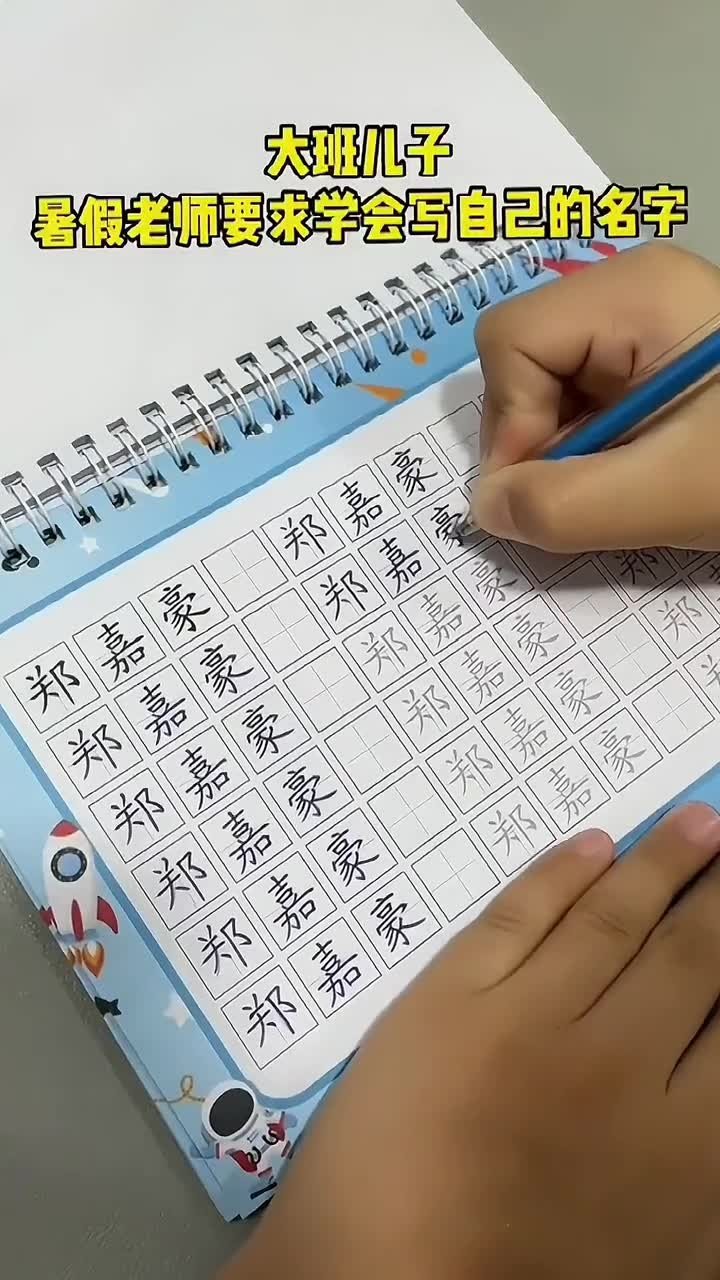 大班儿子
暑假老师要求学会写自己的名字
郑嘉豪 郑嘉豪
郑嘉豪 郑嘉豪 郑
郑嘉豪 郑嘉豪 郑
郑嘉豪 郑嘉豪
郑嘉豪 郑嘉豪
郑嘉豪 郑嘉豪